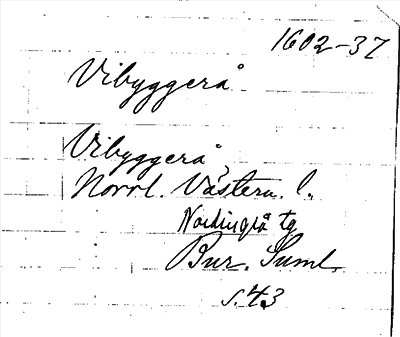 1602-37
Vibyggerå
Vibyggerå,
Norrl. Västern. l.
Nordingrå tg
Bur. Suml.
s. 43